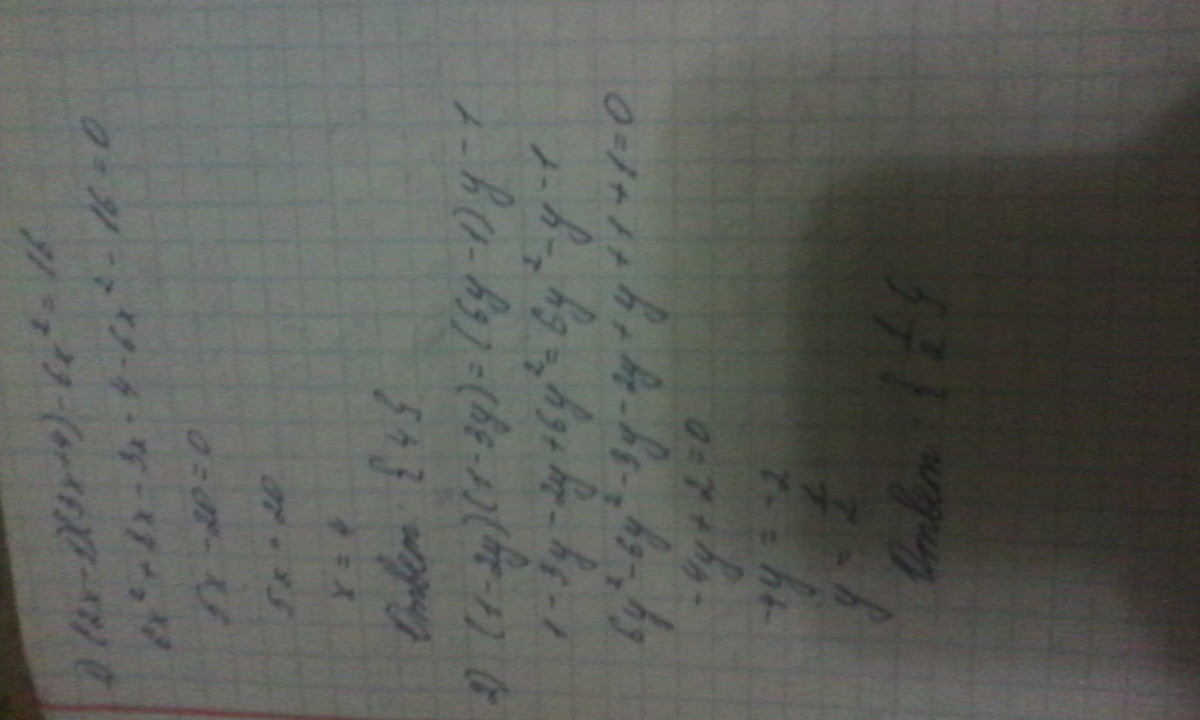 1) (2x-1)(3x+4)-6x²=16
6x²+8x-3x-4-6x²-16=0
5x-20=0
5x=20
x=4
Ответ: {4}
2) (1-2y)(1-3y)=(6y-1)y-1
1-3y-2y+6y²=6y²-y-1
6y²-6y²-3y-2y+y+1+1=0
-4y+2=0
-4y=-2
y=1/2
Ответ: {1/2}